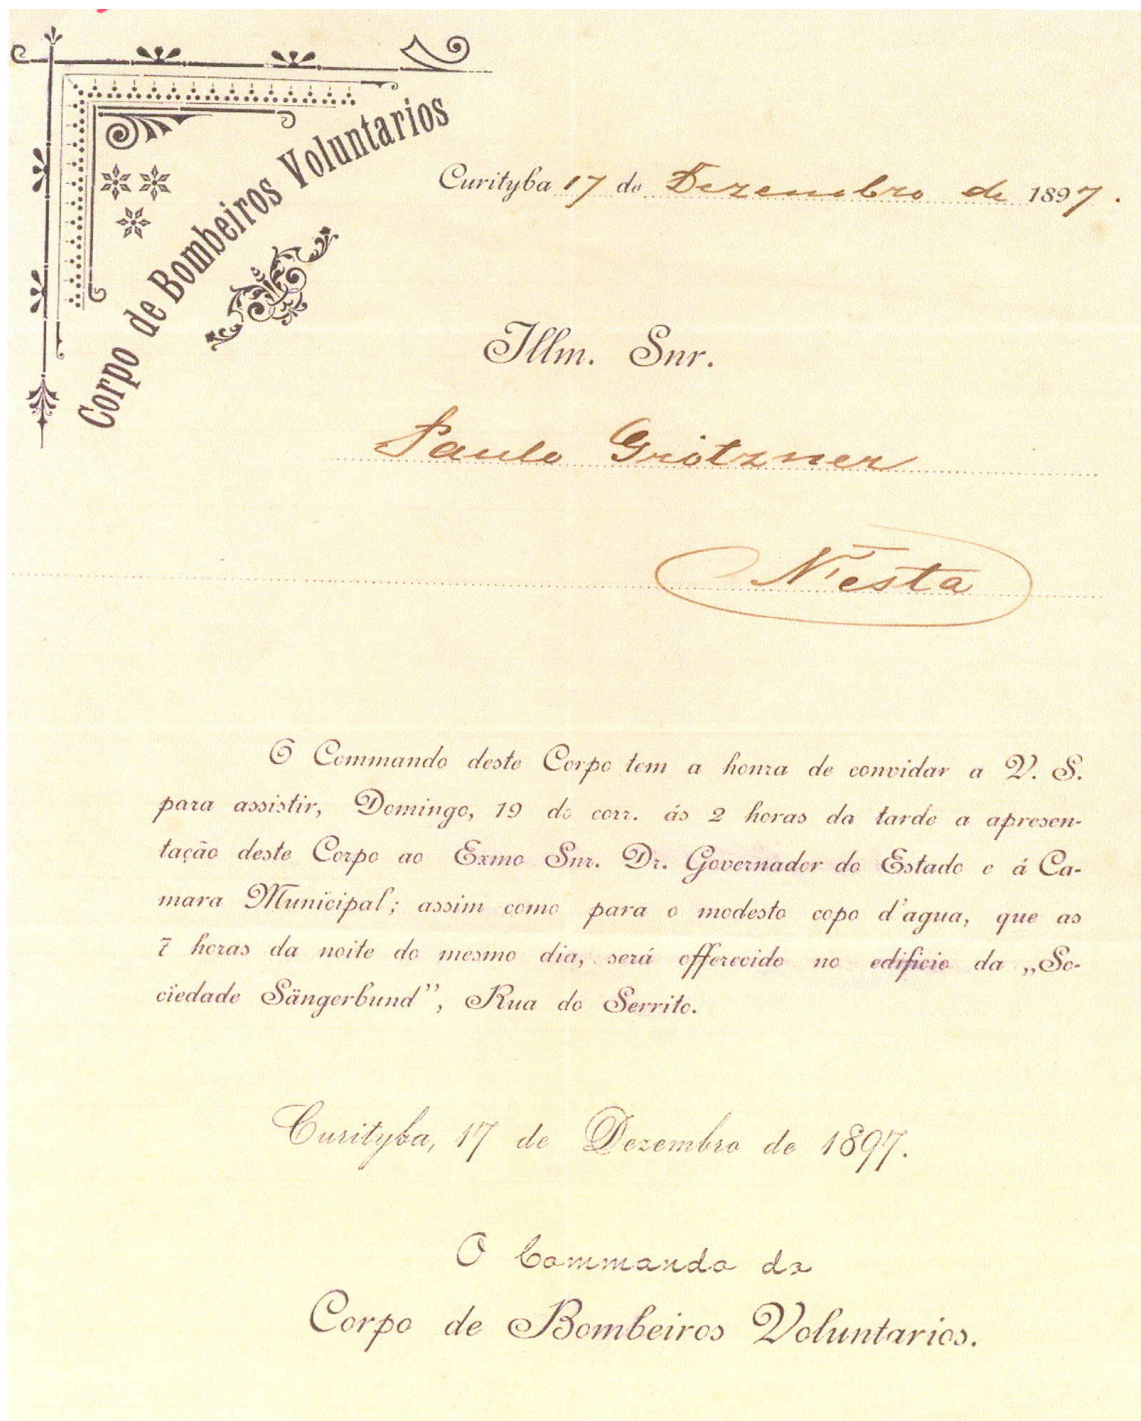 Corpo de Bombeiros Voluntarios
Curityba 17 de Dezembro de 1897.
Illm. Snr.
Paulo Grötzner
N'esta
O Commando deste Corpo tem a honra de convidar a V. S.
para assistir, Domingo, 19 do corr. ás 2 horas da tarde a apresen-
tação deste Corpo ao Exmo Snr. Dr. Governador do Estado e á Ca-
mara Municipal; assim como para o modesto copo d'agua, que as
7 horas da noite do mesmo dia, será offerecido no edificio da „So-
ciedade Sängerbund", Rua do Serrito.
Curityba, 17 de Dezembro de 1897.
O Commando do
Corpo de Bombeiros Voluntarios.